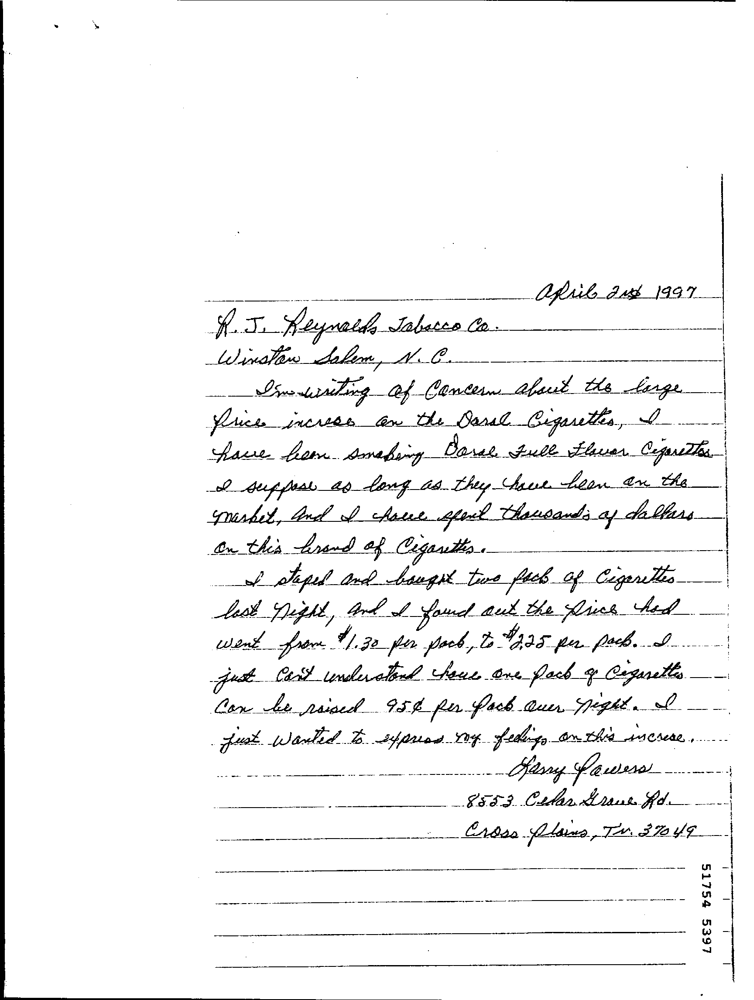 April 2nd 1997
R. J. Reynolds Tobacco Co.
Winston Salem, N. C.
I'm writing of Concern about the large
Price increse on the Doral Cigarettes, I
have been smoking Doral Full Flavor Cigarettes
I suppose as long as they have been on the
market, and I have spent thousands of dollars
on this brand of Cigarettes.
I stoped and bought two pack of Cigarettes
last night, and I found out the price had
went from $1.30 per pack, to $2.25 per pack. I
just can't understand how one pack of Cigarettes
can be raised 95¢ per pack over night. I
just wanted to express my feelings on this increse.
Larry Powers
8553 Cedar Grove Rd.
Cross Plains, Tn. 37049
51754 5397